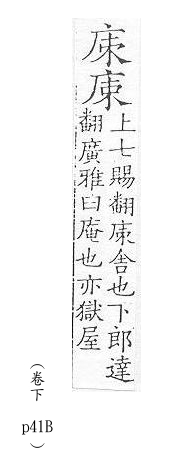 㡹
上七賜翻㡹舍也下郎達
翻廣雅曰庵也亦獄屋
（卷下 p41B）